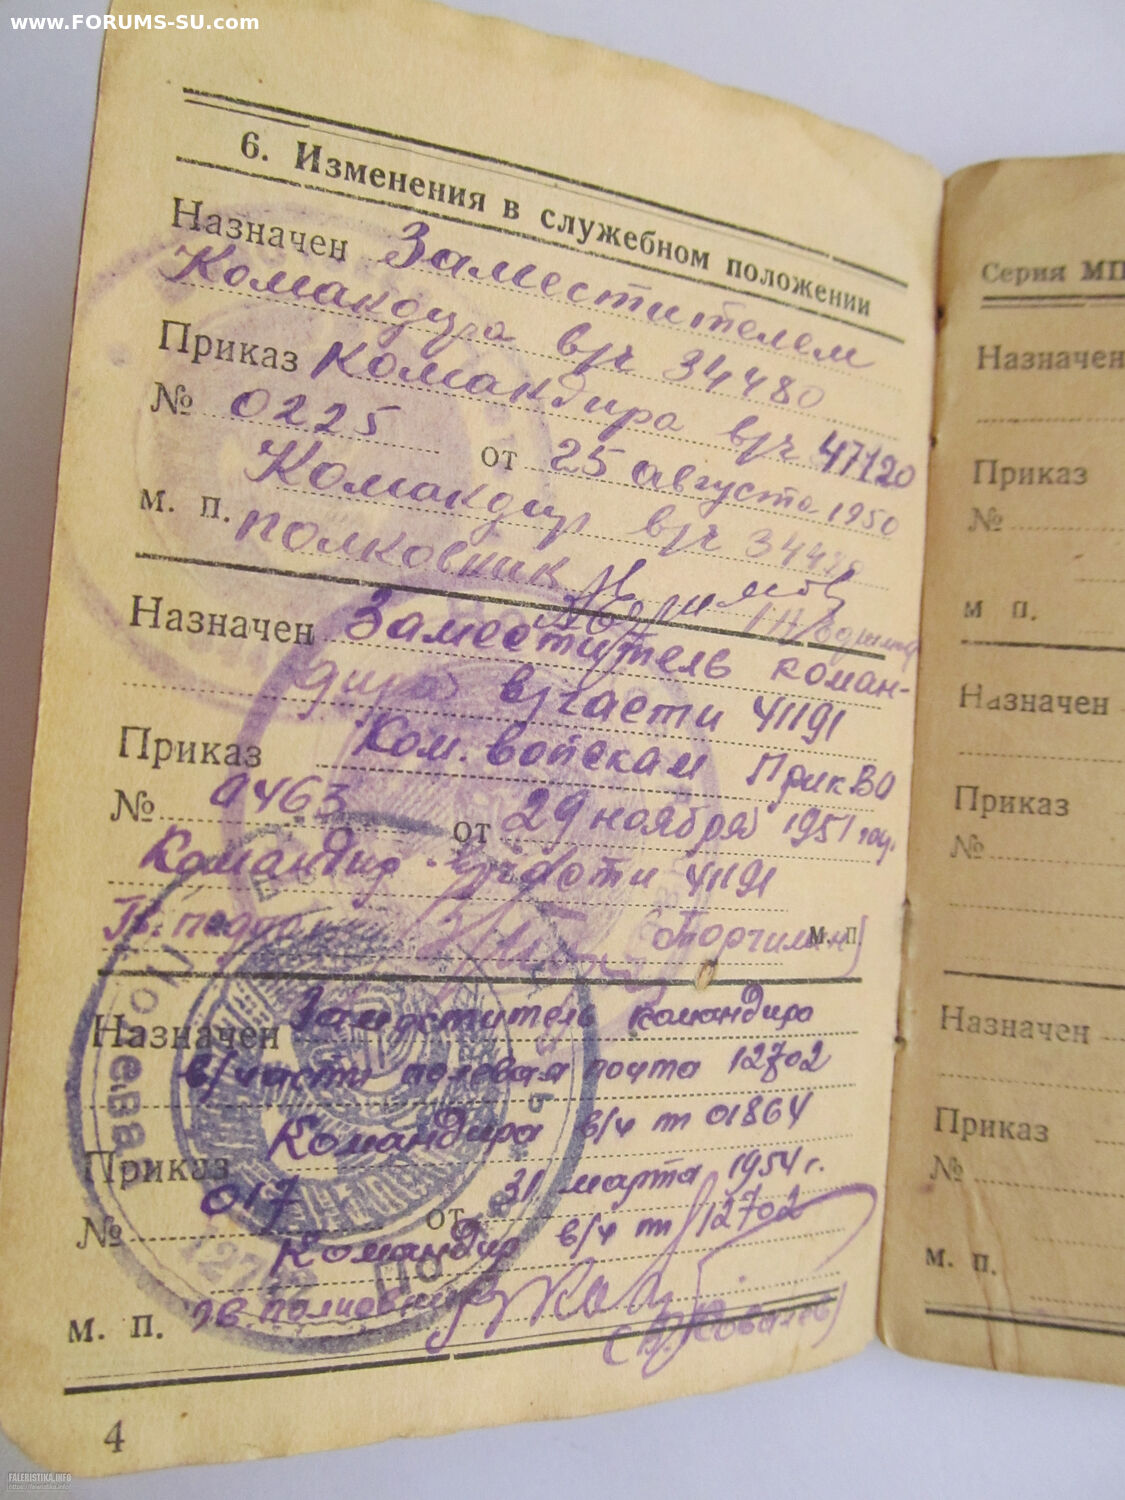 www.FORUMS-SU.com
6. Изменения в служебном положении
Назначен Заместителем
Командира в/ч 34480
Приказ Командира в/ч 47120
№ 0225 от 25 августа 1950
Командир в/ч
м. п. полковник
Назначен Заместитель коман-
дира в/части 41191
Приказ Ком. войскам ПрикВО
№ 0463 от 29 ноября 1951 год.
Командир в/части 41191
Гв.
м. п.
Назначен Заместитель командира
в/части полевая почта 12702
Командира в/ч пп 01864
Приказ
№ 017 от 31 марта 1954 г.
Командир в/ч пп 12702
м. п. гв. полковник
(В. Ковалев)
4
Серия МП
Назначен
Приказ
№
м п.
Назначен
Приказ
№
Назначен
Приказ
№
м. п.
FALERISTIKA.INFO
https://faleristika.info